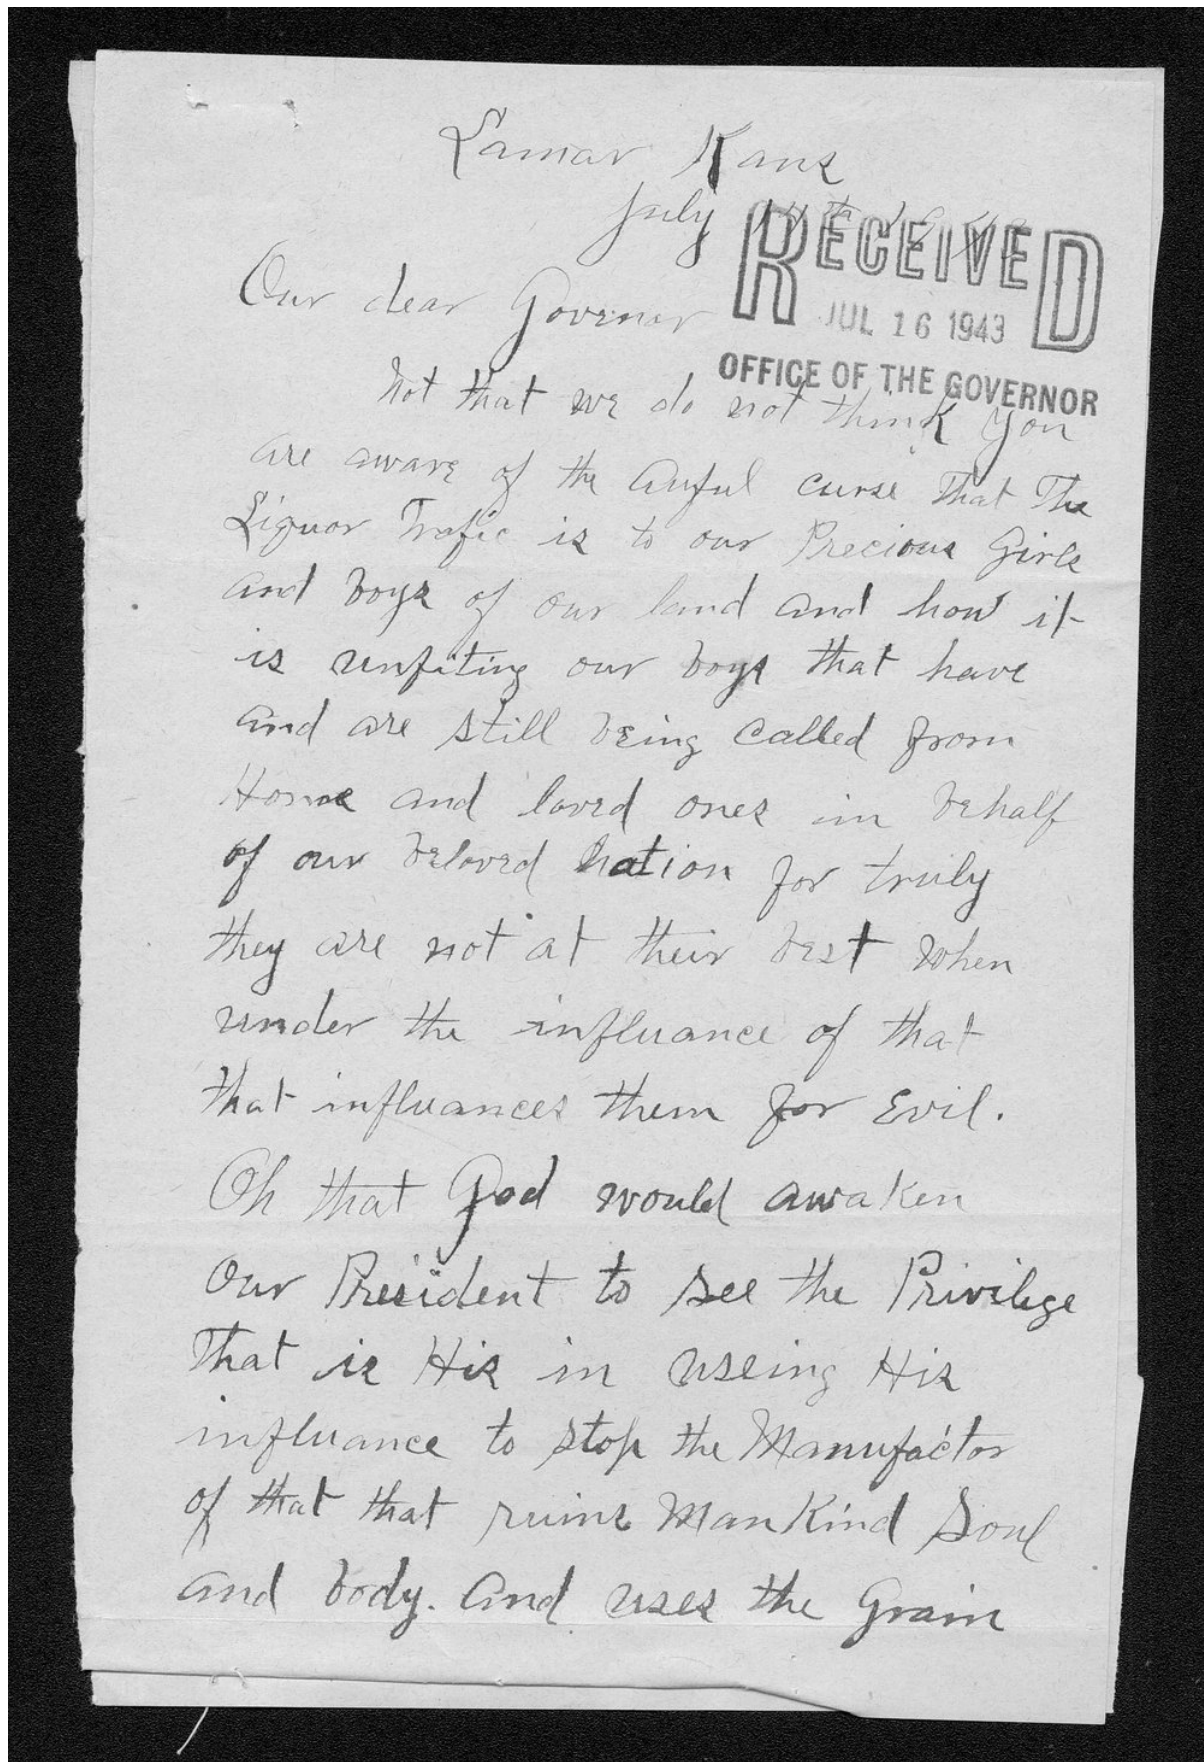 Lamar Kans
July 14th 1943
RECEIVED
JUL 16 1943
OFFICE OF THE GOVERNOR
Our dear Govenor
Not that we do not think you
are aware of the Auful curse That The
Liquor Trafic is to our Precious Girls
and boys of our land and how it
is unfiting our boys that have
and are still being called from
Home and loved ones in behalf
of our beloved Nation for truly
they are not at their best when
under the influance of that
that influances them for Evil.
Oh that God would awaken
Our President to see the Privilege
That is His in useing His
influance to stop the Manufactor
of that that ruins Mankind Soul
and body. And uses the Grain